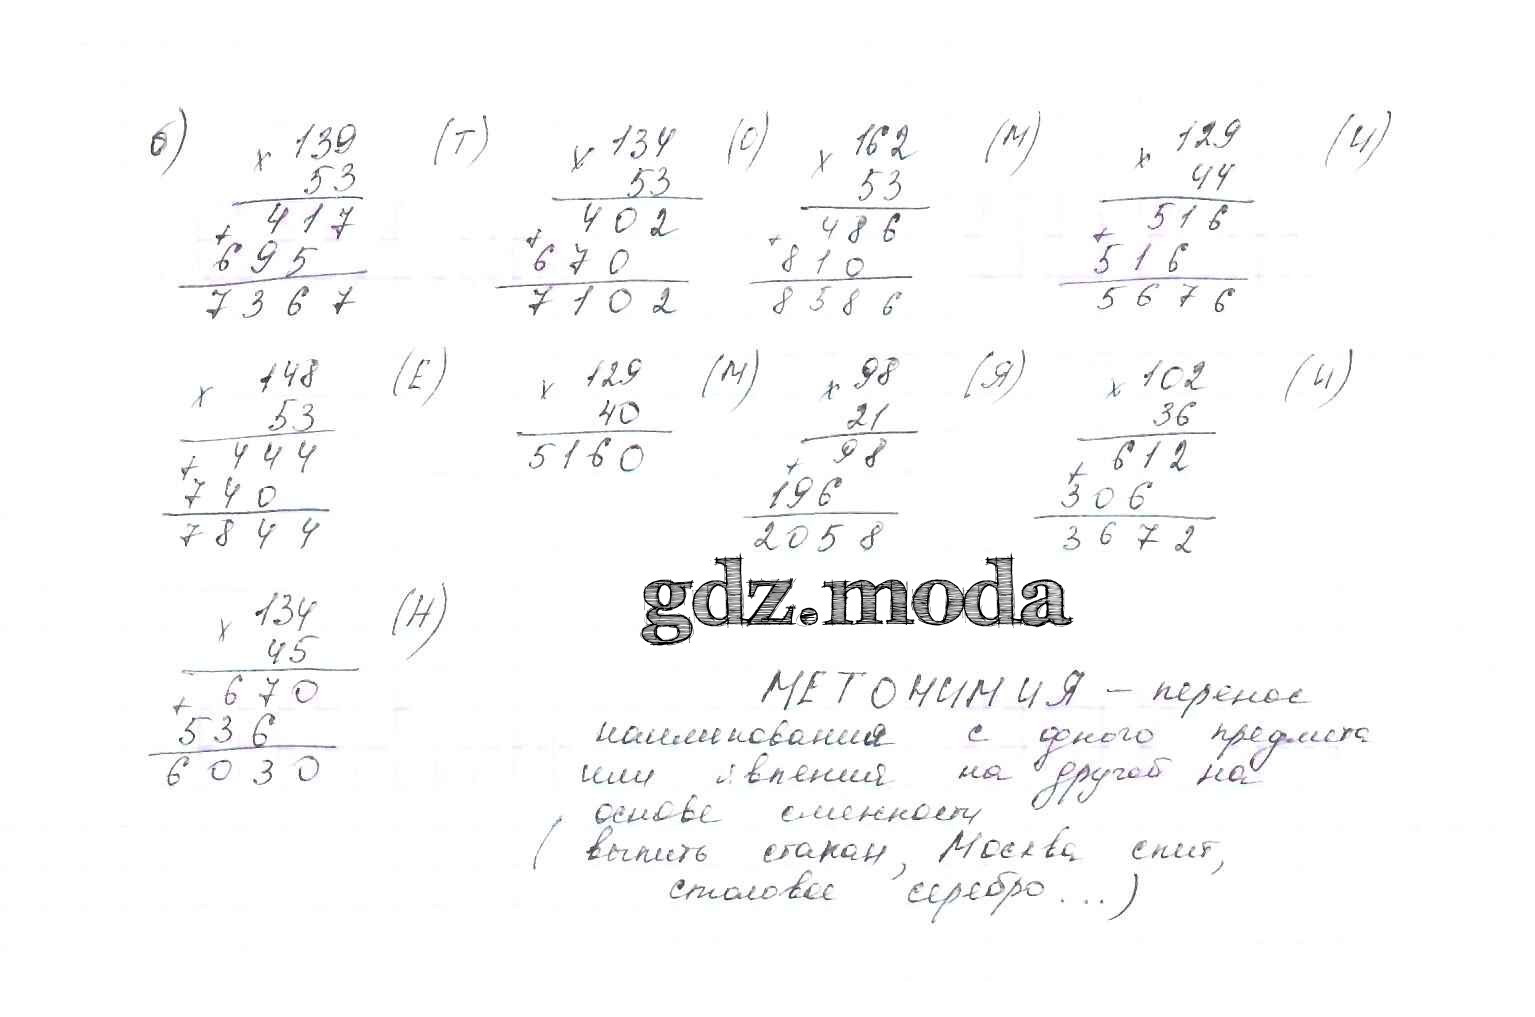 б) × 139 (Т) × 134 (О) × 162 (М) × 129 (И)
53 53 53 44
+ 417 + 402 + 486 + 516
695 670 810 516
7367 7102 8586 5676
× 148 (Е) × 129 (М) × 98 (Я) × 102 (И)
53 40 21 36
+ 444 5160 + 98 + 612
740 196 306
7844 2058 3672
gdz.moda
× 134 (Н)
45
+ 670
536
6030
МЕТОНИМИЯ – перенос
наименования с одного предмета
или явления на другой на
основе смежности
(выпить стакан, Москва спит,
столовое серебро...)